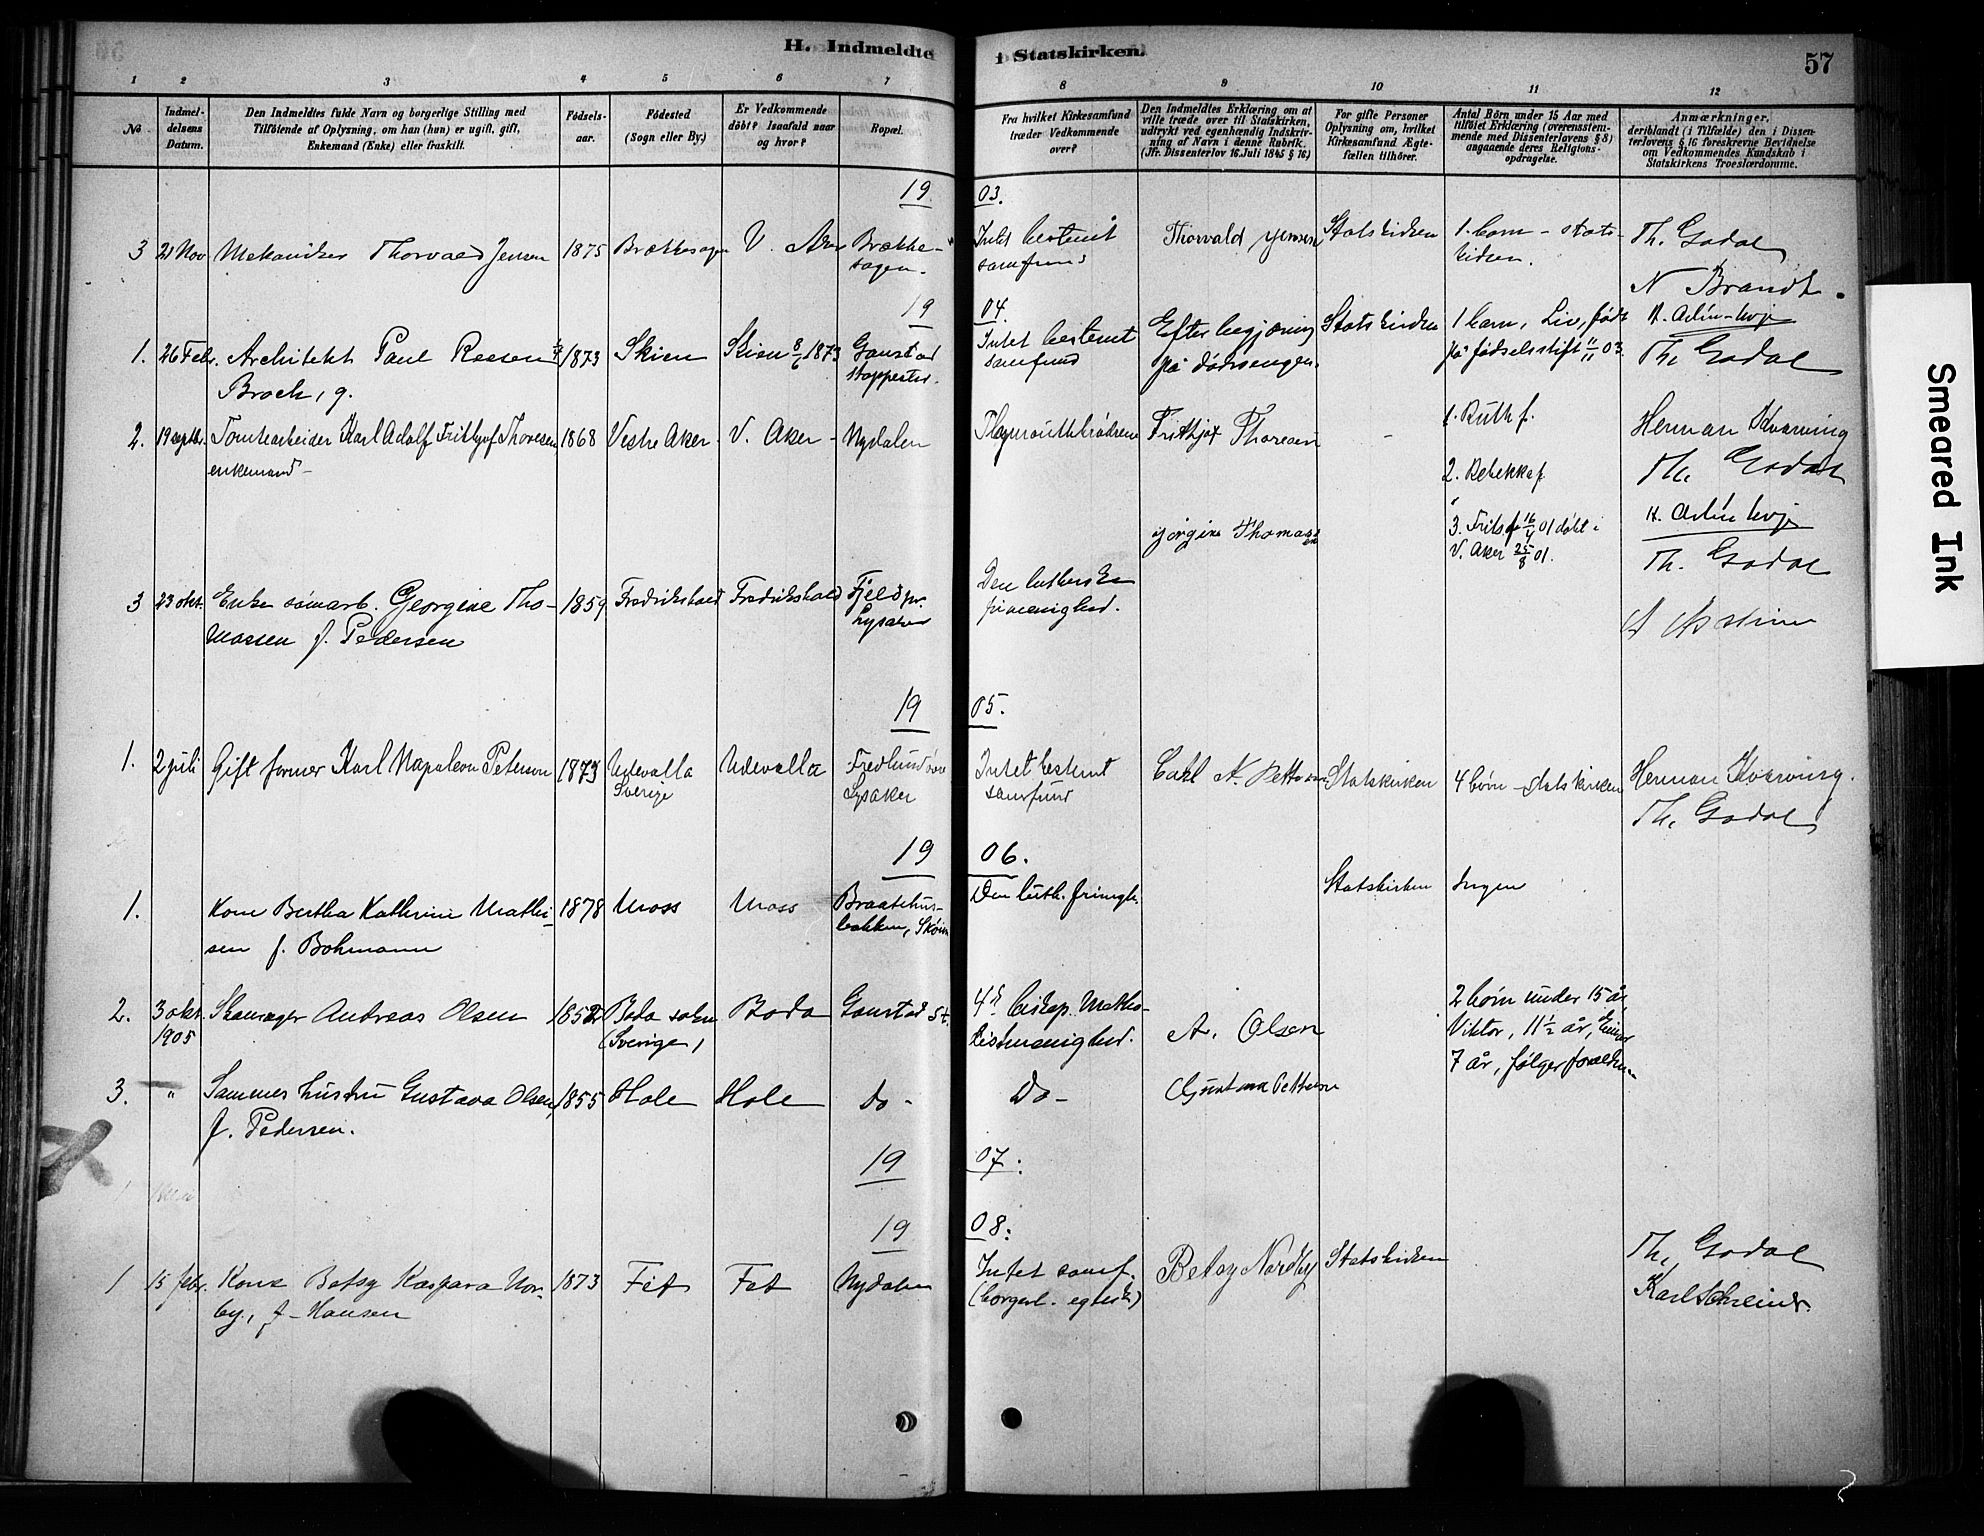 H. Indmeldte i Statskirken.
57
1 2 3 4 5 6 7 8 9 10 11 12
No
Indmel-
delsens
Datum.
Den Indmeldtes fulde Navn og borgerlige Stilling med
Tilföiende af Oplysning, om han (hun) er ugift, gift,
Enkemand (Enke) eller fraskilt.
Födsels-
aar.
Födested
(Sogn eller By.)
Er Vedkommende
döbt? Isaafald naar
og hvor?
Bopæl.
Fra hvilket Kirkesamfund
træder Vedkommende
over?
Den Indmeldtes Erklæring om at
ville træde over til Statskirken,
udtrykt ved egenhændig Indskriv-
ning af Navn i denne Rubrik.
(Jfr. Dissenterlov 16. Juli 1845 § 16)
For gifte Personer
Oplysning om, hvilket
Kirkesamfund Ægte-
fællen tilhörer.
Antal Börn under 15 Aar med
tilföiet Erklæring (overensstem-
mende med Dissenterlovens § 8)
angaaende deres Religions-
opdragelse.
Anmærkninger,
deriblandt (i Tilfælde) den i Dissen-
terlovens § 16 foreskrevne Bevidnelse
om Vedkommendes Kundskab i
Statskirkens Troeslærdomme.
19 03.
3 21 Nov Mekaniker Thorvald Jensen 1875 Brækkesagen V. Aker Brække-
sagen.
Intet bestemt
samfund
Thorvald Jensen
Statskirken
1. barn - stats-
kirken.
Th. Godal
N Brandt.
19 04.
1. 26 Febr. Architekt Paul Reesen
Broch, g.
1873 Skien Skien 8/6 1873 Gaustad
stoppested.
Intet bestemt
samfund
Efter begjæring
på dødssengen.
Statskirken
1 barn, Liv, født
på fødselsstift 11/11 03.
Th. Godal
2. 19 septbr. Tomtearbeider Karl Adolf Frithjof Thoresen
enkemand -
1868 Vestre Aker V. Aker - Nydalen
Plymouthbrødrene
Frithjof Thoresen
-
1. Ruth f.
2. Rebekka f.
3. Frits f. 16/4 01 døbt i
V. Aker 25/8 01.
Herman Kvarving
Th. Godal
3 23 okt. Enke sømarb. Georgine Tho-
massen f. Pedersen
1859 Fredrikshald Fredrikshald Fjeld pr.
Lysaker
Den lutherske
frimenighed.
Jørgine Thomassen
Th. Godal
19 05.
1. 2 juli Gift former Karl Napoleon Peterson 1873 Udevalla
Sverige
Udevalla
Lysaker
Intet bestemt
samfund
Carl N. Petterson
Statskirken
4 børn - statskirken
Herman Kvarving.
Th. Godal
19 06.
1. Kone Bertha Kathrine Mathi-
sen f. Bohmann
1878 Moss Moss Braatehus-
bakken, Skøien
Den luth. frimgh.
Statskirken
Ingen
2. 3 okt.
1905
Skomager Andreas Olsen 1852 Boda sokn
(Sverige)
Boda Gaustad st.
4de biskop. Metho-
distmenighed.
A. Olsen
2 børn under 15 år,
Viktor, 11½ år, Einar
7 år, følger forældrene
3. " Sammes hustru Gustava Olsen,
f. Pedersen.
1855 Hole Hole do - Do -
Gustava Petterson
19 07.
19 08.
1 15 febr. Kone Betsy Kaspara Nor-
by, f. Hansen
1873 Fet Fet Nydalen
Intet samf.
(borgerl. egtesk)
Betsy Nordby
Statskirken
Th. Godal
Karl Schreiner.
Smeared Ink